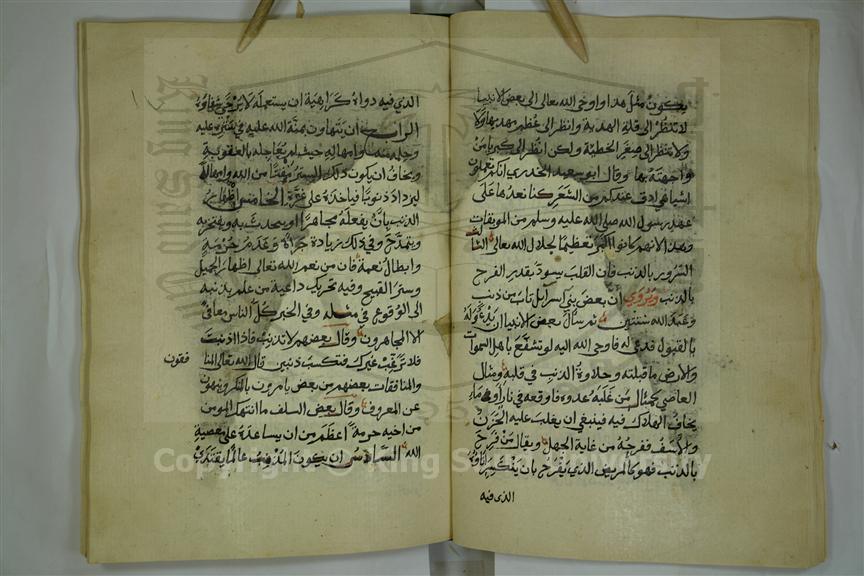 يكون مثل هذا واوحى الله تعالى الى بعض الانبيا
لا تنظر الى قلة الهدية وانظر الى عظم مهديها ولا
ولا تنظر الى صغر الخطيئة ولكن انظر الى كبريا من
واجهته بها وقال ابو سعيد الخدري انكم تعملون
اشيا هي ادق عندكم من الشعر كنا نعدها على
عهد رسول الله صلى الله عليه وسلم من الموبقات
وهذا لانهم كانوا اكبر تعظيما لجلال الله تعالى الثالث
السرور بالذنب فان القلب يسود بقدر الفرح
بالذنب ويروى أن بعض بني اسرائيل تاب من ذنب
وعبد الله سنتين ثم سأل بعض الانبيا ان يدعو له
بالقبول فدعى له فاوحى الله اليه لو تشفع باهل السموات
والارض ما قبلته وحلاوة الذنب في قلبه ومثال
العاصي كمثال من غلبه عدوه فاوقعه في نار او في ماء
يخاف الهلاك فيه فينبغي ان يغلب عليه الحزن
والاسف ففرحه من غاية الجهل ويقال من فرح
بالذنب فهو كالمريض الذي يفرح بان ينكسر اناؤه
الذي فيه
الذي فيه دواه كراهية ان يستعمله لا يرجى شفاؤه
الرابع أن يتهاون بمنة الله عليه في ستره عليه
وحلمه عنه وامهاله حيث لم يعاجله بالعقوبة
ويخاف ان يكون ذلك الستر مقتا من الله وامهالا
ليزداد ذنوبا فياخذه على غرة الخامس اظهار
الذنب بان يفعله مجاهرا او يتحدث به ويفتخر به
ويتمدح وفي ذلك زيادة جراة وعدم حرمة
وابطال نعمة فان من نعم الله تعالى اظهار الجميل
وستر القبيح وفيه تحريك داعية من علم بذنبه
الى الوقوع في مثله وفي الخبر كل الناس معافى
الا المجاهرون وقال بعضهم لا تذنب فاذا اذنبت
فلا ترغب غيرك فتكسب ذنبين قال الله تعالى المنافقون
والمنافقات بعضهم من بعض يامرون بالمنكر وينهون
عن المعروف وقال بعض السلف ما انتهك المومن
من اخيه حرمة اعظم من ان يساعده على معصية
الله السادس ان يكون المذنب عالما يقتدى
Copyright © King Saud University